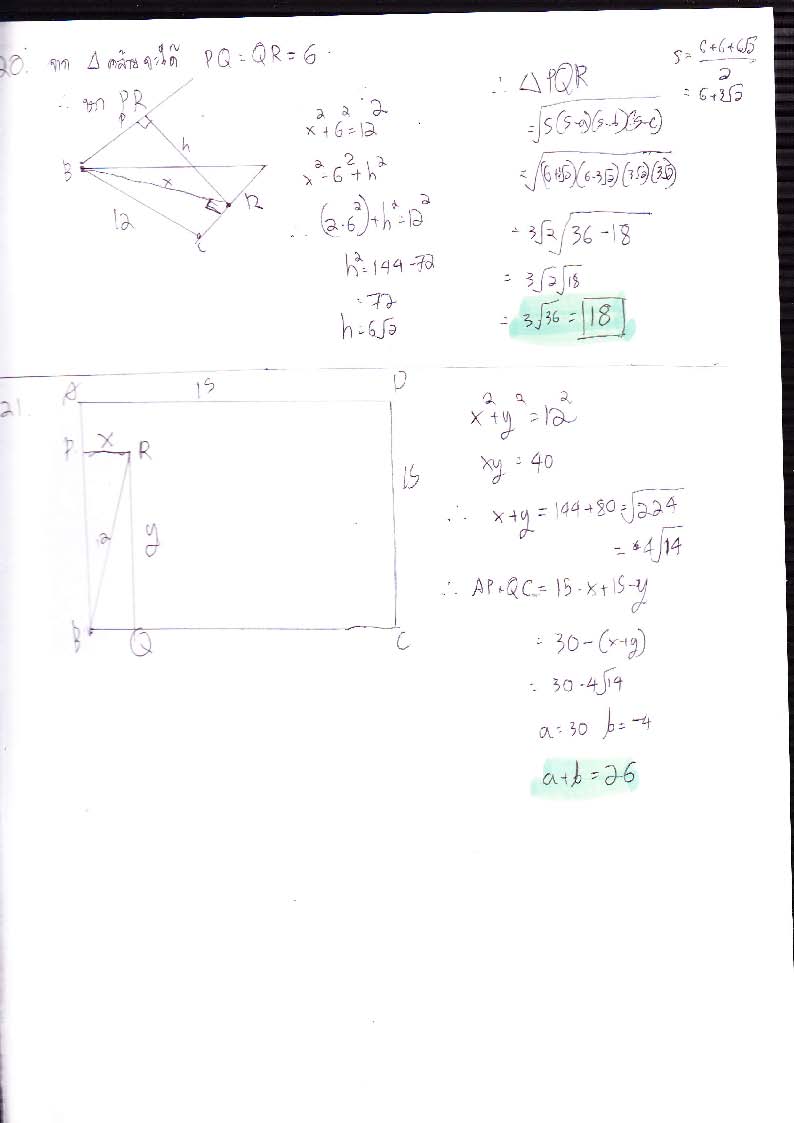 20. จาก Δ คล้ายจะได้ PQ = QR = 6
∴ หา PR
P
h
B
x
R
12
C
x² + 6² = 12²
x² = 6² + h²
∴ (2·6²) + h² = 12²
h² = 144 - 72
= 72
h = 6√2
∴ △PQR
= √S(S-a)(S-b)(S-c)
= √(6+3√2)(6-3√2)(3√2)(3√2)
= 3√2 √36 - 18
= 3√2 √18
= 3√36 = 18
S = 6+6+6√2
2
= 6+3√2
21.
A 15 D
P x R
15
12
y
B Q C
x² + y² = 12²
xy = 40
∴ x+y = 144+80 = √224
= 4√14
∴ AP+QC = 15-x+15-y
= 30-(x+y)
= 30-4√14
a = 30 b = -4
a+b = 26